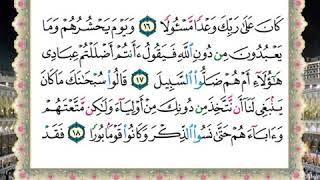 كَانَ عَلَىٰ رَبِّكَ وَعْدًا مَّسْـُٔولًا ١٦ وَيَوْمَ يَحْشُرُهُمْ وَمَا
يَعْبُدُونَ مِن دُونِ ٱللَّهِ فَيَقُولُ ءَأَنتُمْ أَضْلَلْتُمْ عِبَادِى
هَٰٓؤُلَآءِ أَمْ هُمْ ضَلُّوا۟ ٱلسَّبِيلَ ١٧ قَالُوا۟ سُبْحَٰنَكَ مَا كَانَ
يَنۢبَغِى لَنَآ أَن نَّتَّخِذَ مِن دُونِكَ مِنْ أَوْلِيَآءَ وَلَٰكِن مَّتَّعْتَهُمْ
وَءَابَآءَهُمْ حَتَّىٰ نَسُوا۟ ٱلذِّكْرَ وَكَانُوا۟ قَوْمًۢا بُورًا ١٨ فَقَدْ